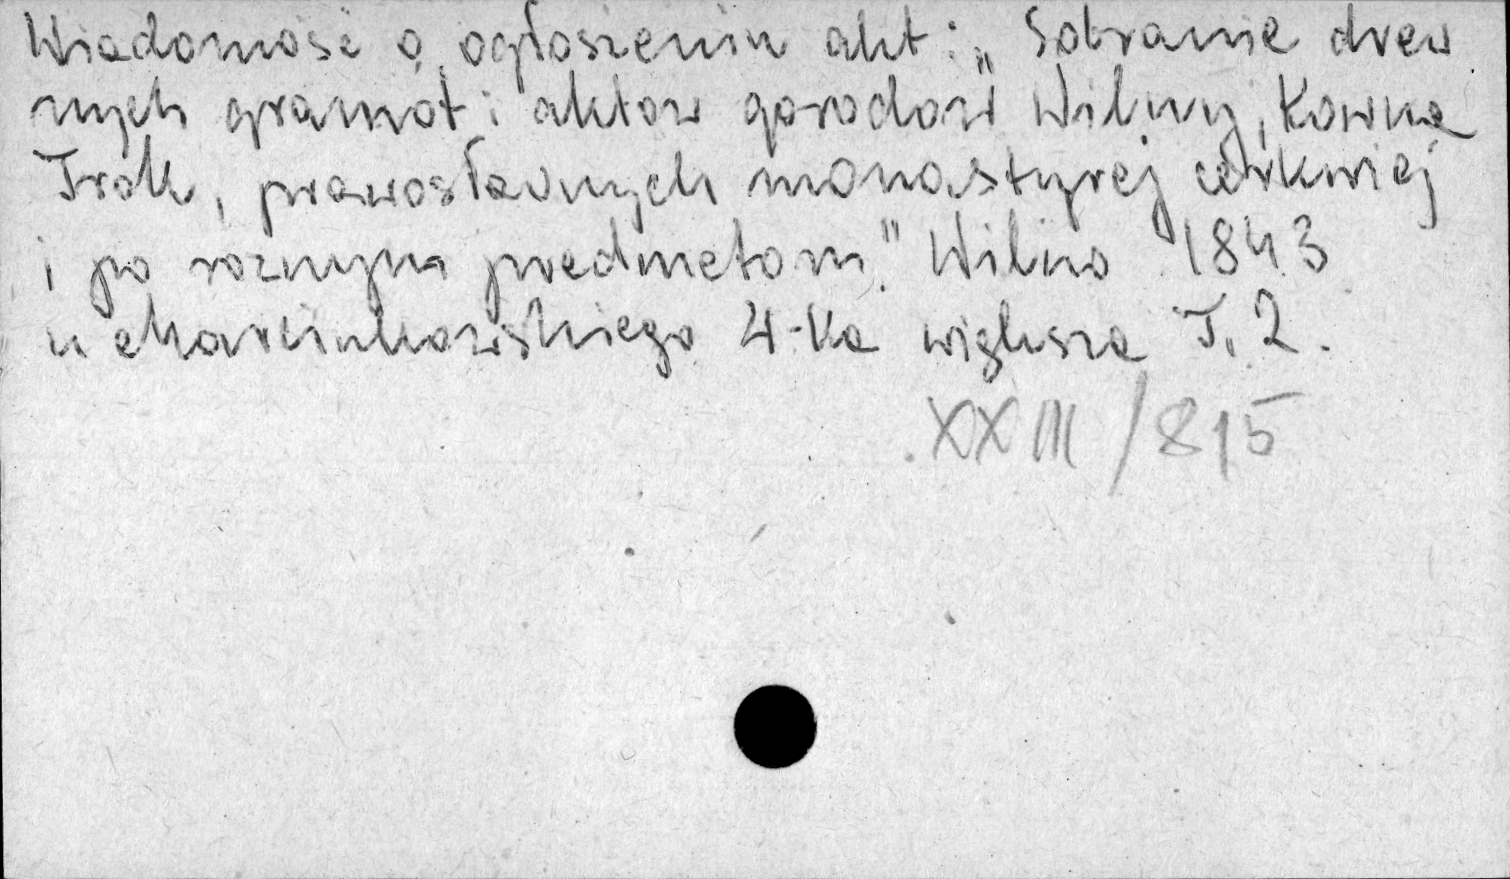 Wiadomość o ogłoszeniu akt: „Sobranie drew
nych gramot i aktow gorodow" Wilny, Kowna
Trok, prawosławnych monastyrej cerkwiej
i po roznym predmetom." Wilno 1843
u Marcinkowskiego 4-ka większa T. 2.
XXIII/815